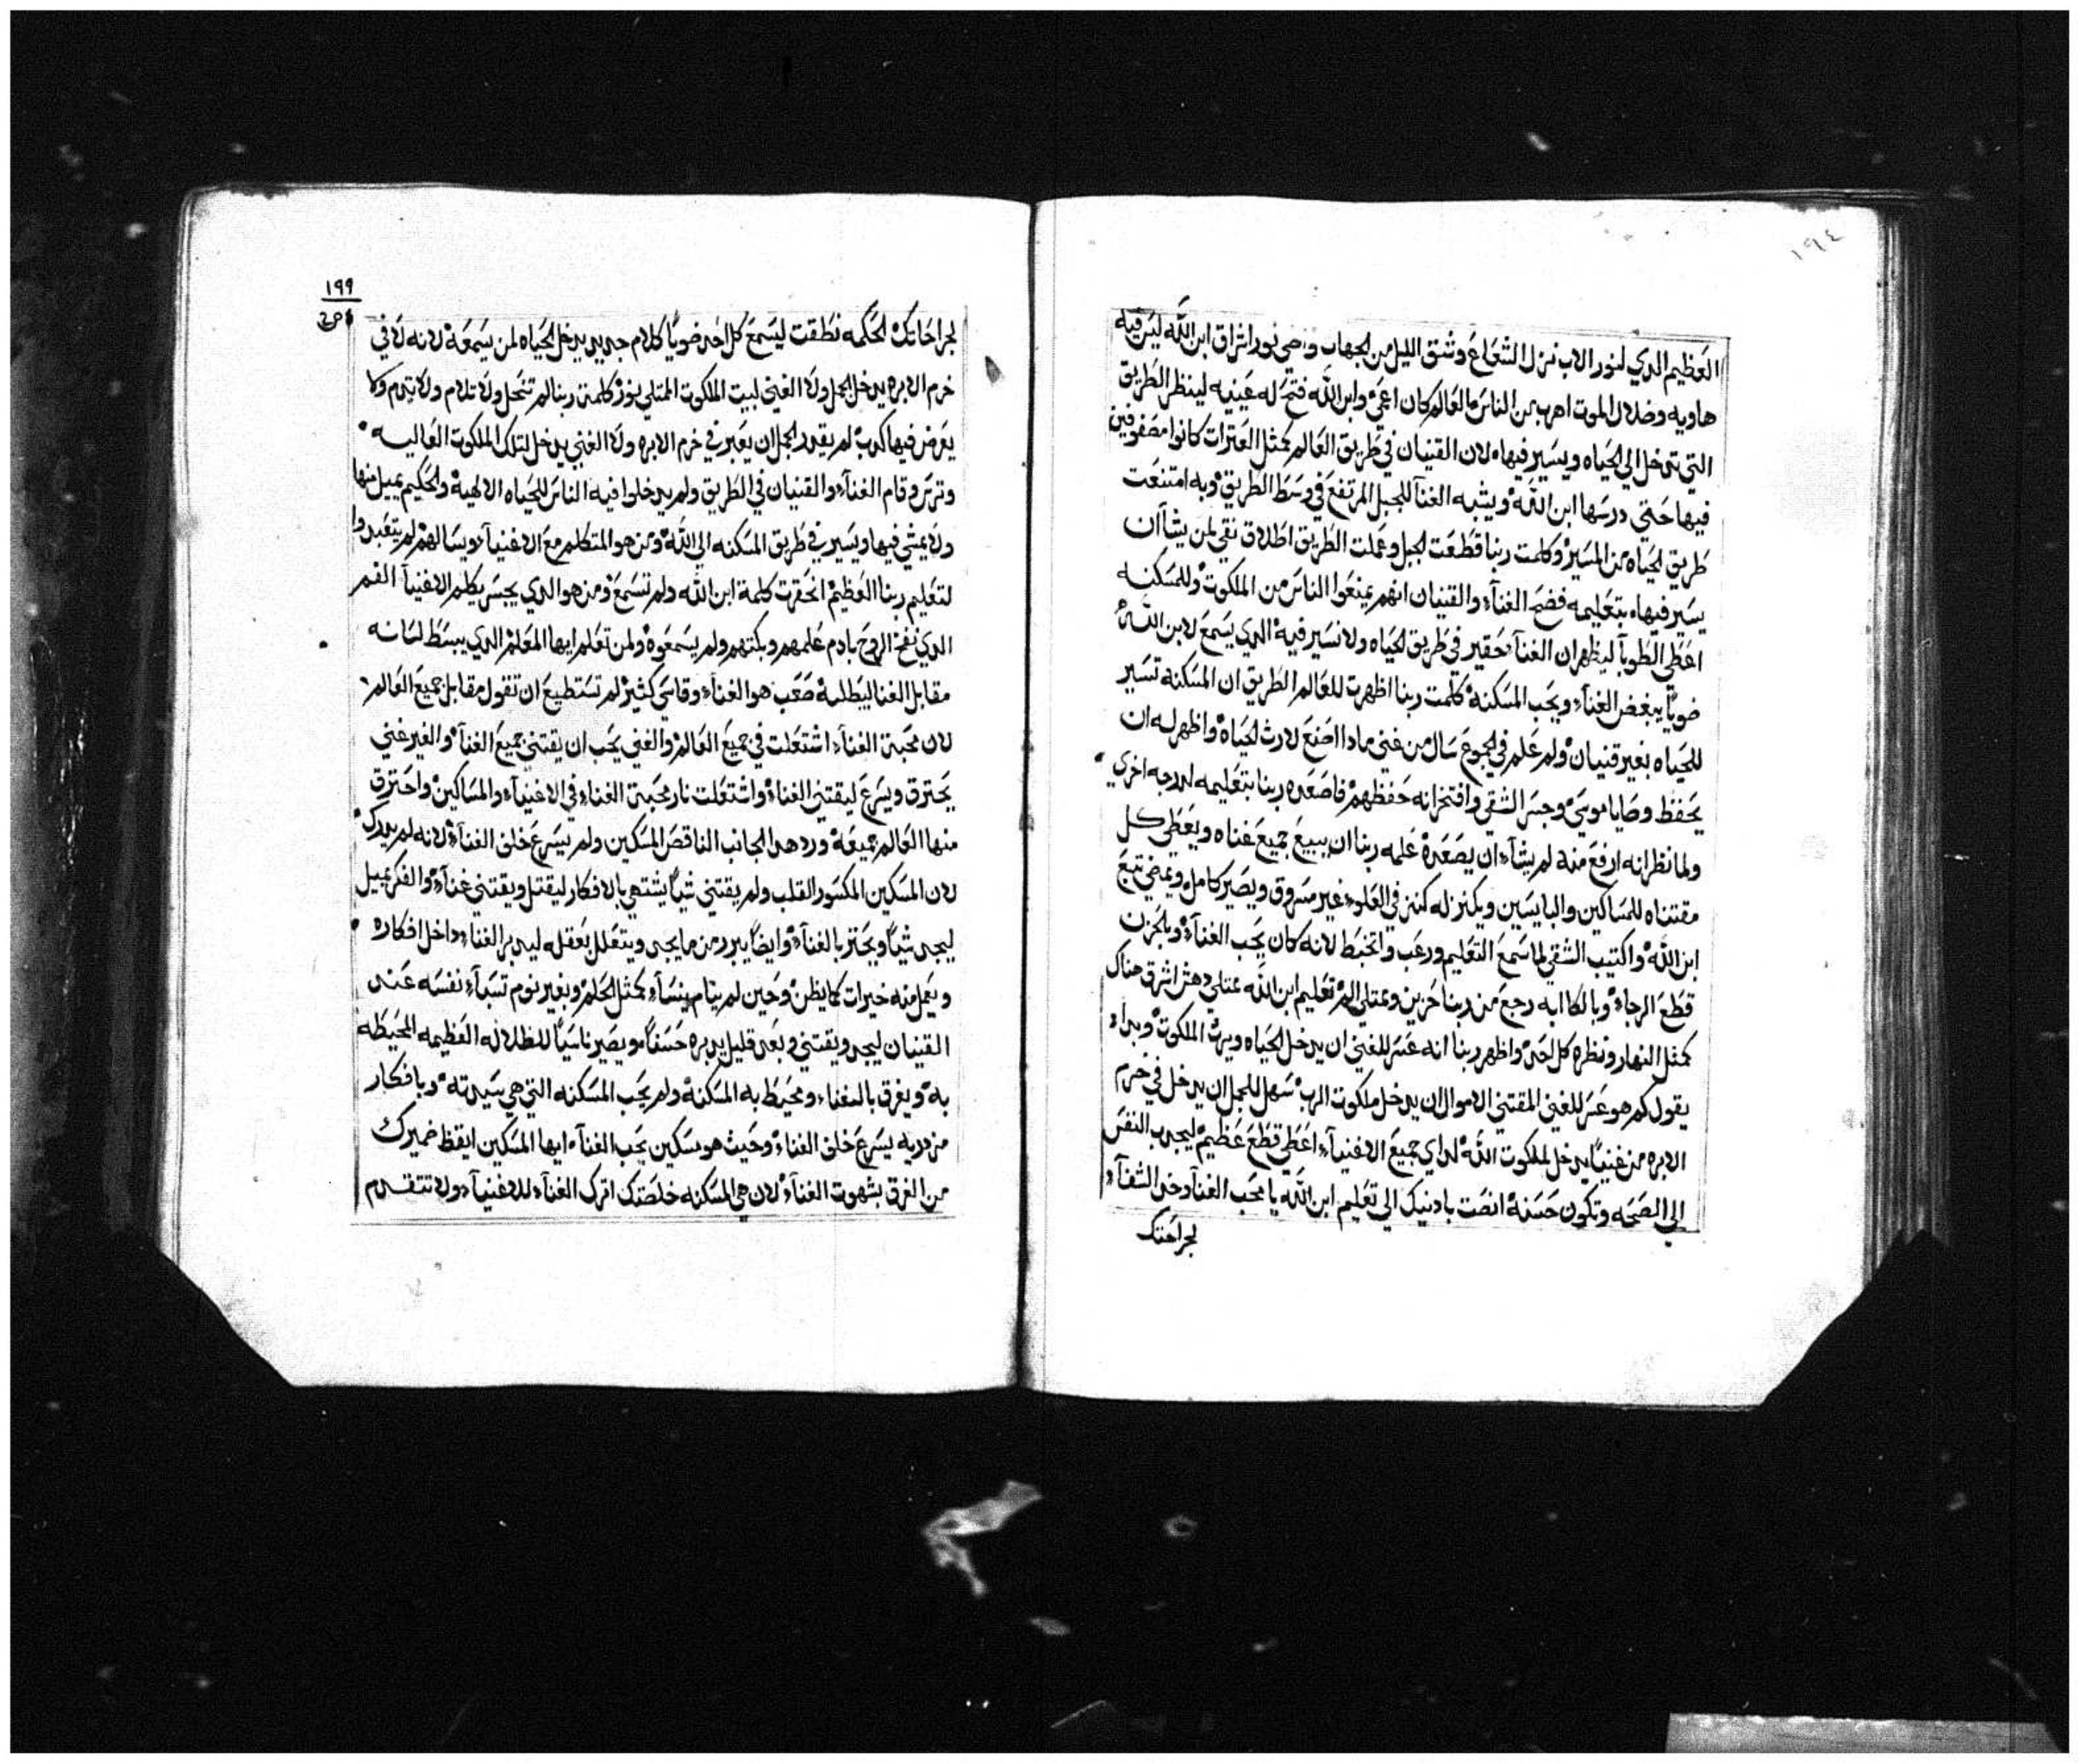 ١٩٤
العظيم الدي لنور الاب نزل الشعاع وشق الليل من الجهاب وضي نور اشراق ابن الله ليس فيه
هاويه وضلال الموت اهرب من الناس العالم كان اعمي وابن الله فتح له عينيه لينظر الطريق
التي تدخل الي الحياه ويسير فيها لان القنيان في طريق العالم كمثل العترات كانوا مصفوفين
فيها حتي درسها ابن الله ويشبه الغنا للجبل المرتفع في وسط الطريق وبه امتنعت
طريق الحياه من المسير وكلمت ربنا قطعت الجبل وعملت الطريق اطلاق نقي لمن يشاان
يسير فيها بتعليمه فضح الغنآ والقنيان انهم يمنعوا الناس من الملكوت وللمسكنه
اعطي الطوبآ ليظهر ان الغنآ حقير في طريق الحياه ولا نسير فيه الدي يسمع لابن الله
ضويًا يبغض الغنآ ويحب المسكنة كلمت ربنا اظهرت للعالم الطريق ان المسكنه تسير
للحياه بغير قنيان ولم علم في الجموع سال من غني مادا اصنع لارث الحياه واظهر له ان
يحفظ وصايا موسي وجسر الشقي وافتخر انه حفظهم فاصعده ربنا بتعليمه لدرجه اخري
ولما نظر انه ارفع منه لم يشآ ان يصعده علمه ربنا ان يبيع جميع غناه ويعطي كل
مقتناه للمساكين والبايسين ويكنز له كنز في العلو غير مسروق ويصير كامل ويمضي تتبع
ابن الله واكتيب الشقي لما سمع التعليم ورعب واتخبط لانه كان يحب الغنآ وبالحزن
قطع الرجاء وبالكاابه رجع من ربنا حزين وممتلي الم تعليم ابن الله ممتلي دهش اشرق هناك
كمثل النهار ونظره كل احد واظهر ربنا انه عسر للغني ان يدخل الحياه ويرث الملكوت وبدا
يقول كم هو عسر للغني المقتني الاموال ان يدخل ملكوت الرب سهل للجمل ان يدخل في خرم
الابره من غنيًا يدخل لملكوت الله لداي جميع الاغنيآ اعطي قطع عظيم ليجدب النفس
الي الصحه وتكون حسنة انصت بادنيك الي تعليم ابن الله يا محب الغنآ وخد الشفآ
لجراحتك
١٩٩
لجراحاتك الحكمه نطقت ليسمع كل احد ضويًا كلام جديد يدخل الحياه لمن يسمعه لانه لا في
خرم الابره يدخل الجمل ولا الغني لبيت الملكوت الممتلي نور كلمة ربنا لم تنحل ولا تلام ولا تعدم وكا
يعرض فيها كدب لم يقدر الجمل ان يعبر في خرم الابره ولا الغني يدخل لتلك الملكوت العاليه
وترس وقام الغنآ والقنيان في الطريق ولم يدخلوا فيه الناس للحياه الالهية والحكيم يميل منها
ولا يمشي فيها ويسير في طريق المسكنه الي الله ومن هو المتكلم مع الاغنيآ ويسالهم لم يتعبدوا
لتعليم ربنا العظيم انحقرت كلمة ابن الله ولم تسمع ومن هو الدي يجسر يكلم الاغنيا الفم
الدي نفخ الروح بادم علمهم وبكتهم ولم يسمعوه ولمن تعلم ايها المعلم الدي يبسط لسانه
مقابل الغنا ليبطلة صعب هو الغناء وقاسي كثير لم تستطيع ان تقول مقابل جميع العالم
لان محبة الغنآ اشتعلت في جميع العالم والغني يحب ان يقتني جميع الغنآ والغير غني
يحترق ويسرع ليقتني الغناء واشتعلت نار محبة الغناء في الاغنيآ والمساكين واحترق
منها العالم جميعة ورد هدا الجانب الناقص المسكين ولم يسرع خلف الغنآ لانه لم يدرك
لان المسكين المكسور القلب ولم يقتني شيًا يشتهي بالافكار ليقتل ويقتني غنآ والفكر يميل
ليجد شيًا ويحتر بالغنآ وايضًا يبرد من ما يجد ويتعلل بعقله ليدبر الغناء داخل افكاره
ويعمل منه خيرات كما يظن وحين لم ينام ينسآ كمثل الحلم وبغير نوم تسبآ نفسه عند
القنيان ليجد ويقتني وبعد قليل يدبره حسنًا ويصير ناسيًا للظلاله العظيمه المحيطه
به ويغرق بالغناء ومحيط به المسكنة ولم يحب المسكنه التي هي سيدته وبافكار
مزدريه يسرع خلف الغناء وحيث هو مسكين يحب الغنآ ايها المسكين ايقظ ضميرك
من الغرق بشهوت الغنآ لان هي المسكنه خلصتك اترك الغنآ للاغنيآ ولا تتقدم